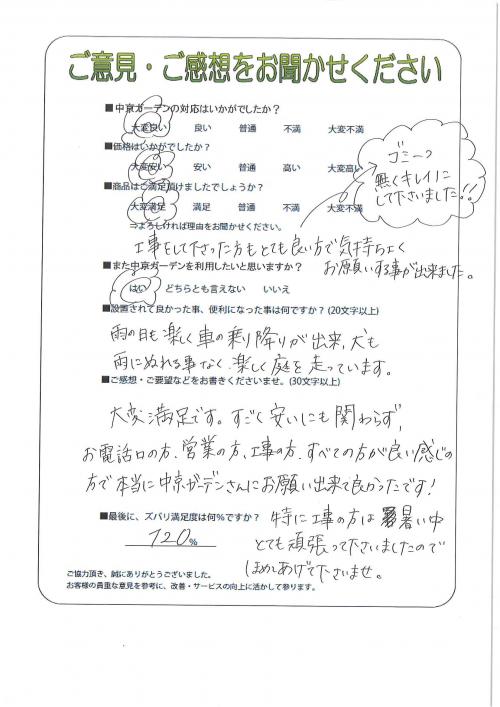 ご意見・ご感想をお聞かせください
■中京ガーデンの対応はいかがでしたか？
大変良い 良い 普通 不満 大変不満
■価格はいかがでしたか？
大変安い 安い 普通 高い 大変高い
■商品はご満足頂けましたでしょうか？
大変満足 満足 普通 不満 大変不満
ゴミ一つ
無くキレイに
して下さいました!!
⇒よろしければ理由をお聞かせください。
工事をして下さった方もとても良い方で気持ちよく
お願いする事が出来ました。
■また中京ガーデンを利用したいと思いますか？
はい どちらとも言えない いいえ
■設置されて良かった事、便利になった事は何ですか？(20文字以上)
雨の日も楽しく車の乗り降りが出来、犬も
雨にぬれる事なく、楽しく庭を走っています。
■ご感想・ご要望などをお書きくださいませ。(30文字以上)
大変満足です。すごく安いにも関わらず、
お電話口の方、営業の方、工事の方、すべての方が良い感じの
方で本当に中京ガーデンさんにお願い出来て良かったです!
■最後に、ズバリ満足度は何%ですか？
120%
特に工事の方は暑い中
とても頑張って下さいましたので
ほめてあげて下さいませ。
ご協力頂き、誠にありがとうございました。
お客様の貴重な意見を参考に、改善・サービスの向上に活かして参ります。